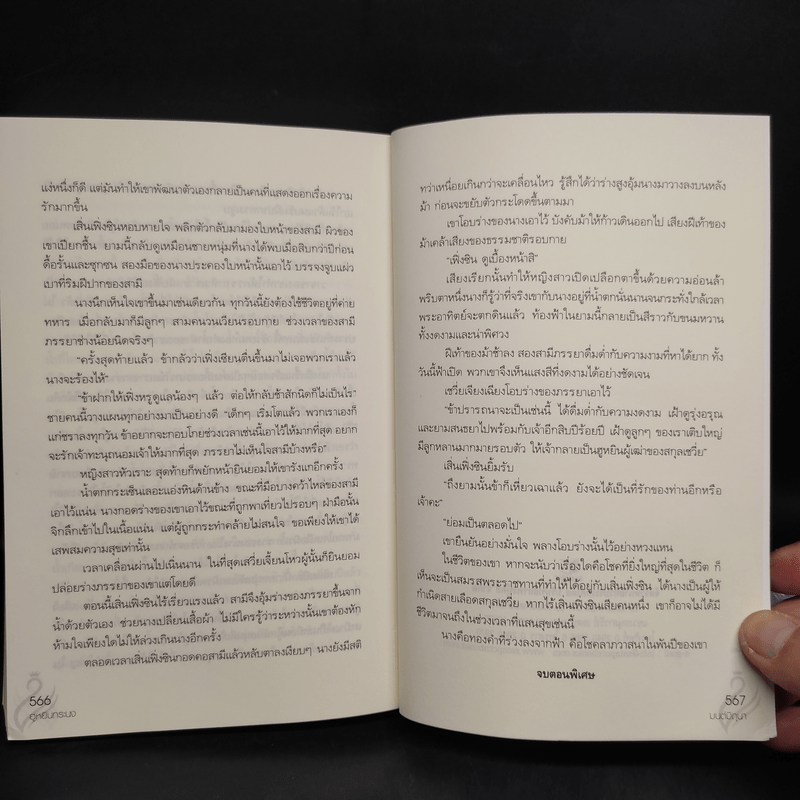 แง่หนึ่งก็ดี แต่มันทำให้เขาพัฒนาตัวเองกลายเป็นคนที่แสดงออกเรื่องความ
รักมากขึ้น
เสิ่นเฟิ่งซินหอบหายใจ พลิกตัวกลับมามองใบหน้าของสามี ผิวของ
เขาเปียกชื้น ยามนี้กลับดูเหมือนชายหนุ่มที่นางได้พบเมื่อสิบกว่าปีก่อน
ดื้อรั้นและซุกซน สองมือของนางประคองใบหน้านั้นเอาไว้ บรรจงจูบแผ่ว
เบาที่ริมฝีปากของสามี
นางนึกเห็นใจเขาขึ้นมาเช่นเดียวกัน ทุกวันนี้ยังต้องใช้ชีวิตอยู่ที่ค่าย
ทหาร เมื่อกลับมาก็มีลูกๆ สามคนวนเวียนรอบกาย ช่วงเวลาของสามี
ภรรยาช่างน้อยนิดจริงๆ
"ครั้งสุดท้ายแล้ว ข้ากลัวว่าเฟิ่งเซียนตื่นขึ้นมาไม่เจอพวกเราแล้ว
นางจะร้องไห้"
"ข้าฝากให้เฟิ่งหรูดูแลน้องๆ แล้ว ต่อให้กลับช้าสักนิดก็ไม่เป็นไร"
ชายคนนี้วางแผนทุกอย่างมาเป็นอย่างดี "เด็กๆ เริ่มโตแล้ว พวกเราเองก็
แก่ชราลงทุกวัน ข้าอยากจะกอบโกยช่วงเวลาเช่นนี้เอาไว้ให้มากที่สุด อยาก
จะรักเจ้าทะนุถนอมเจ้าให้มากที่สุด ภรรยาไม่เห็นใจสามีบ้างหรือ"
หญิงสาวหัวเราะ สุดท้ายก็พยักหน้ายินยอมให้เขารังแกอีกครั้ง
น้ำตกกระเซ็นเลอะแอ่งหินด้านข้าง ขณะที่มือบางคว้าไหล่ของสามี
เอาไว้แน่น นางกอดร่างของเขาเอาไว้ขณะที่ถูกพาเที่ยวไปรอบๆ ฝ่ามือนั้น
จิกลึกเข้าไปในเนื้อแน่น แต่ผู้ถูกกระทำคล้ายไม่สนใจ ขอเพียงให้เขาได้
เสพสมความสุขเท่านั้น
เวลาเคลื่อนผ่านไปเนิ่นนาน ในที่สุดเสวี่ยเจี้ยนโหวผู้นั้นก็ยินยอม
ปล่อยร่างภรรยาของเขาแต่โดยดี
ตอนนี้เสิ่นเฟิ่งซินไร้เรี่ยวแรงแล้ว สามีจึงอุ้มร่างของภรรยาขึ้นจาก
น้ำด้วยตัวเอง ช่วยนางเปลี่ยนเสื้อผ้า ไม่มีใครรู้ว่าระหว่างนั้นเขาต้องหัก
ห้ามใจเพียงใดไม่ให้ล่วงเกินนางอีกครั้ง
ตลอดเวลาเสิ่นเฟิ่งซินกอดคอสามีแล้วหลับตาลงเงียบๆ นางยังมีสติ
566
ทว่าเหนื่อยเกินกว่าจะเคลื่อนไหว รู้สึกได้ว่าร่างสูงอุ้มนางมาวางลงบนหลัง
ม้า ก่อนจะขยับตัวกระโดดขึ้นตามมา
เขาโอบร่างของนางเอาไว้ บังคับม้าให้ก้าวเดินออกไป เสียงฝีเท้าของ
ม้าเคล้าเสียงของธรรมชาติรอบกาย
"เฟิ่งซิน ดูเบื้องหน้าสิ"
เสียงเรียกนั้นทำให้หญิงสาวเปิดเปลือกตาขึ้นด้วยความอ่อนล้า
พริบตาหนึ่งนางก็รู้ว่าที่จริงเขากับนางอยู่ที่น้ำตกนั่นนานจนกระทั่งใกล้เวลา
พระอาทิตย์จะตกดินแล้ว ท้องฟ้าในยามนี้กลายเป็นสีราวกับขนมหวาน
ทั้งงดงามและน่าพิศวง
ฝีเท้าของม้าช้าลง สองสามีภรรยาดื่มด่ำกับความงามที่หาได้ยาก ทั้ง
วันนี้ฟ้าเปิด พวกเขาจึงเห็นแสงสีที่งดงามได้อย่างชัดเจน
เซวี่ยเจียงเฉียงโอบร่างของภรรยาเอาไว้
"ข้าปรารถนาจะเป็นเช่นนี้ ได้ดื่มด่ำกับความงดงาม เฝ้าดูรุ่งอรุณ
และยามสนธยาไปพร้อมกับเจ้าอีกสิบปีร้อยปี เฝ้าดูลูกๆ ของเราเติบใหญ่
มีลูกหลานมากมายรอบตัว ให้เจ้ากลายเป็นฮูหยินผู้เฒ่าของสกุลเซวี่ย"
เสิ่นเฟิ่งซินยิ้มรับ
"ถึงยามนั้นข้าก็เหี่ยวเฉาแล้ว ยังจะได้เป็นที่รักของท่านอีกหรือ
เจ้าคะ"
"ย่อมเป็นตลอดไป"
เขายืนยันอย่างมั่นใจ พลางโอบร่างนั้นไว้อย่างหวงแหน
ในชีวิตของเขา หากจะนับว่าเรื่องใดคือโชคที่ยิ่งใหญ่ที่สุดในชีวิต ก็
เห็นจะเป็นสมรสพระราชทานที่ทำให้ได้อยู่กับเสิ่นเฟิ่งซิน ได้นางเป็นผู้ให้
กำเนิดสายเลือดสกุลเซวี่ย หากไร้เสิ่นเฟิ่งซินเสียคนหนึ่ง เขาก็อาจไม่ได้มี
ชีวิตมาจนถึงในช่วงเวลาที่แสนสุขเช่นนี้
นางคือทองคำที่ร่วงลงจากฟ้า คือโชคลาภวาสนาในพันปีของเขา
จบตอนพิเศษ
567